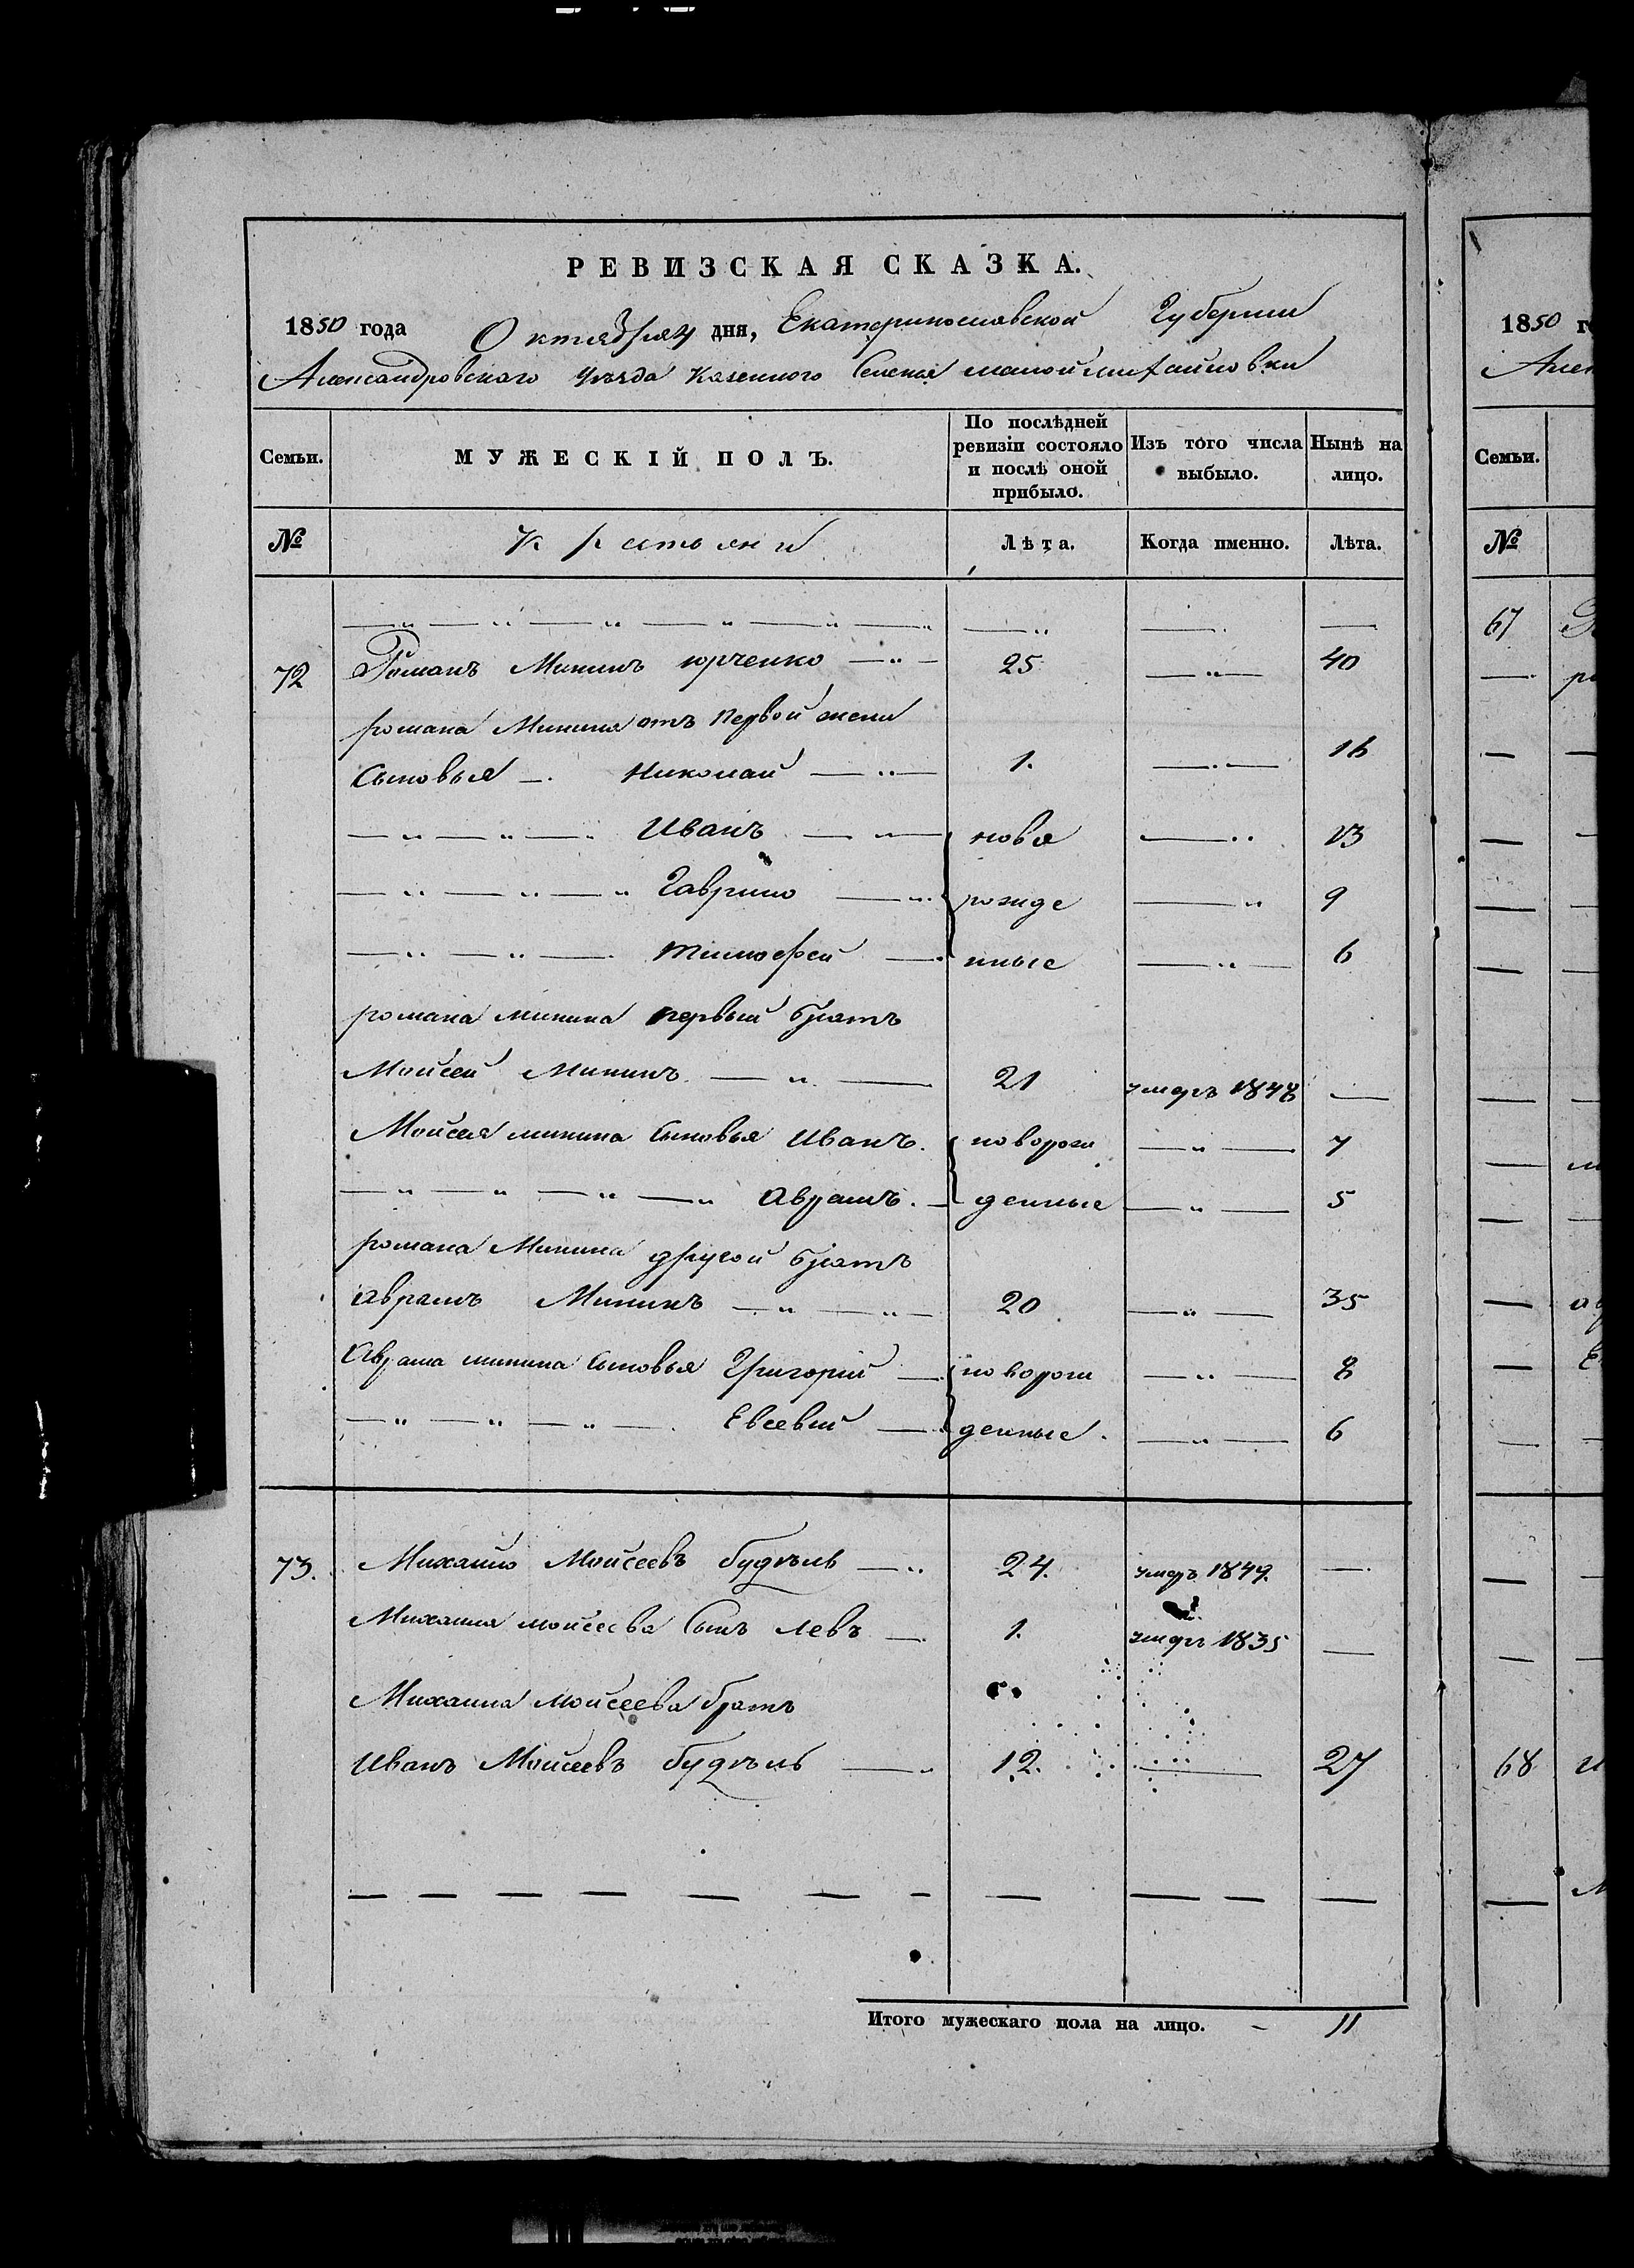 РЕВИЗСКАЯ СКАЗКА.
1850 года Октября 4 дня, Екатеринославской Губернии
Александровскаго уѣзда казенного Селенія малой михайловки
Семьи. МУЖЕСКІЙ ПОЛЪ. По послѣдней ревизіи состояло и послѣ оной прибыло. Изъ того числа выбыло. Нынѣ на лицо.
№ Крестьяни Лѣта. Когда именно. Лѣта.
72 Романъ Мининъ юрченко 25 40
романа Минина отъ первой жени
Сыновья Николай 1. 16
Иванъ ново 13
Гаврило рожде 9
тимофей нные 6
романа минина первый братъ
Моисей Мининъ 21 умеръ 1848
Моисея минина Сыновья Иванъ. новорож 7
Аврамъ. денные 5
романа Минина другой братъ
аврамъ Мининъ 20 35
Аврама минина Сыновья Григорій новорож 8
Евсевій денные 6
73. Михайло Моисеевъ 24. умеръ 1849.
Михаила моисеева Сынъ левъ 1. умеръ 1835
Михаила моисеева братъ
Иванъ Моисеевъ 12. 27
Итого мужескаго пола на лицо. 11
1850
Семьи.
№
67
68